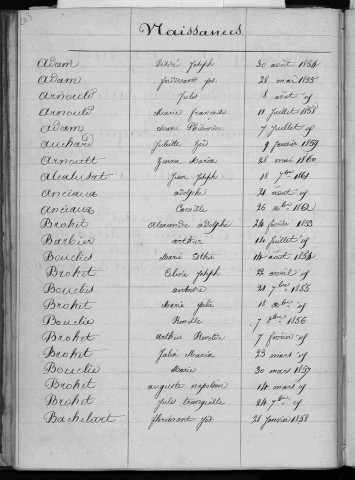 Naissances
Adam Désiré Joseph 30 août 1854
Adam ferdinand Jos. 28 mai 1855
Arnould Jules 8 août id
Arnould Marie françoise 11 Juillet 1858
Adam Marie Philomène 7 Juillet id
Auchard Juliette 9 Janvier 1859
Arnoult Maria 21 mai 1860
Jean-Joseph 18 7bre 1861
Anciaux adolphe 21 août id
Anciaux Camille 26 xbre 1862
Brohet alexandre adolphe 24 février 1853
Barbier arthur 14 Juillet id
Bouclis Marie 14 août 1854
Brohet Joseph 22 avril id
Bouclis antoine 21 7bre 1855
Brohet Marie Julie 18 xbre id
Bouclis 7 8bre 1856
Brohet Arthur 7 février id
Brohet Julie Maria 23 mars id
Bouclis Marie 30 mars 1857
Brohet auguste napoléon 14 mars id
Brohet Jules tranquille 24 7bre id
Bachelart florissant Jos. 28 Janvier 1858